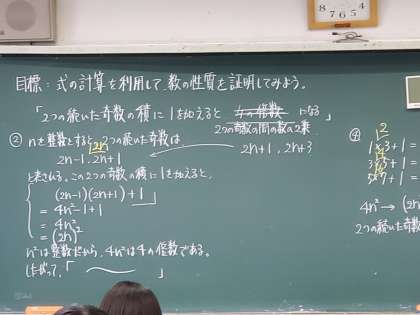 8 7 6 5 4
目標：式の計算を利用して、数の性質を証明してみよう。
「2つの続いた奇数の積に1を加えると 4の倍数 になる」
2つの奇数の間の数の2乗
② nを整数とすると、2つの続いた奇数は、
2n
2n-1, 2n+1
2n+1, 2n+3
と表される。この2つの奇数の積に1を加えると、
(2n-1)(2n+1)+1
= 4n²-1+1
= 4n²
= (2n)²
n²は整数だから、4n²は4の倍数である。
したがって、「 〜 」
④
2
1×3+1=
4
3×5+1=
6
5×7+1=
4n² → (2n
2つの続いた奇数